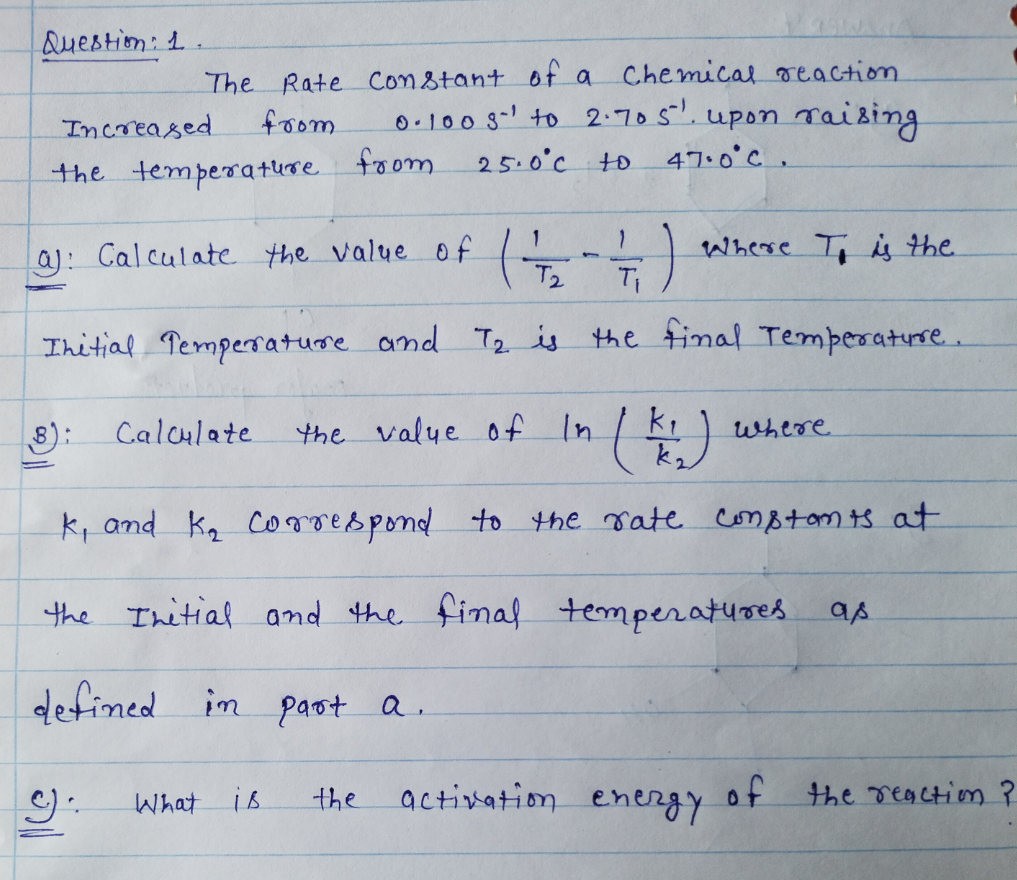 Question: 1.
The Rate Constant of a Chemical reaction
Increased from 0.100 s⁻¹ to 2.70 s⁻¹. upon raising
the temperature from 25.0°c to 47.0°c.
a): Calculate the value of (1/T₂ - 1/T₁) where T₁ is the
Initial Temperature and T₂ is the final Temperature.
B): Calculate the value of ln (K₁/K₂) where
K₁ and K₂ correspond to the rate constants at
the Initial and the final temperatures as
defined in part a.
c): What is the activation energy of the reaction?